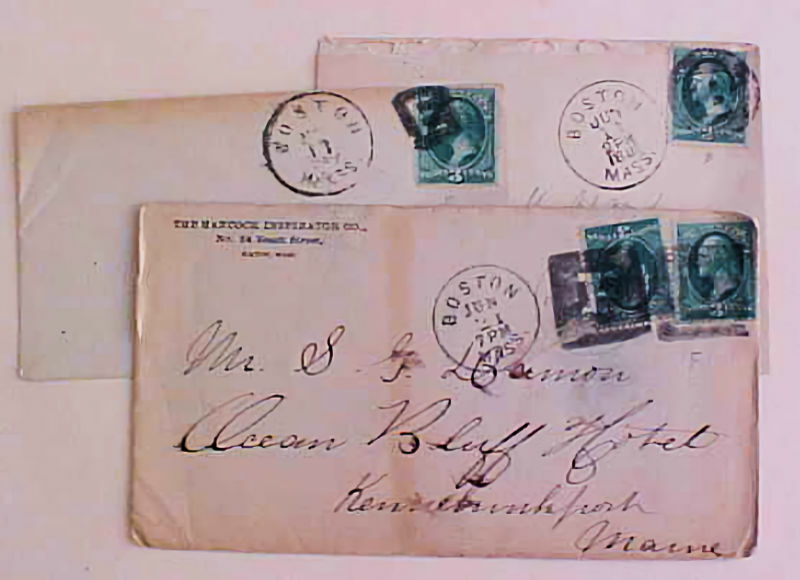 BOSTON
MASS.
BOSTON
JUN
2PM
MASS.
THE HANCOCK INSPIRATOR CO.,
No. 34 Beach Street,
BOSTON, MASS.
BOSTON
JUN
1
7PM
MASS.
Mr. S. G. Damon
Ocean Bluff Hotel
Kennebunkport
Maine